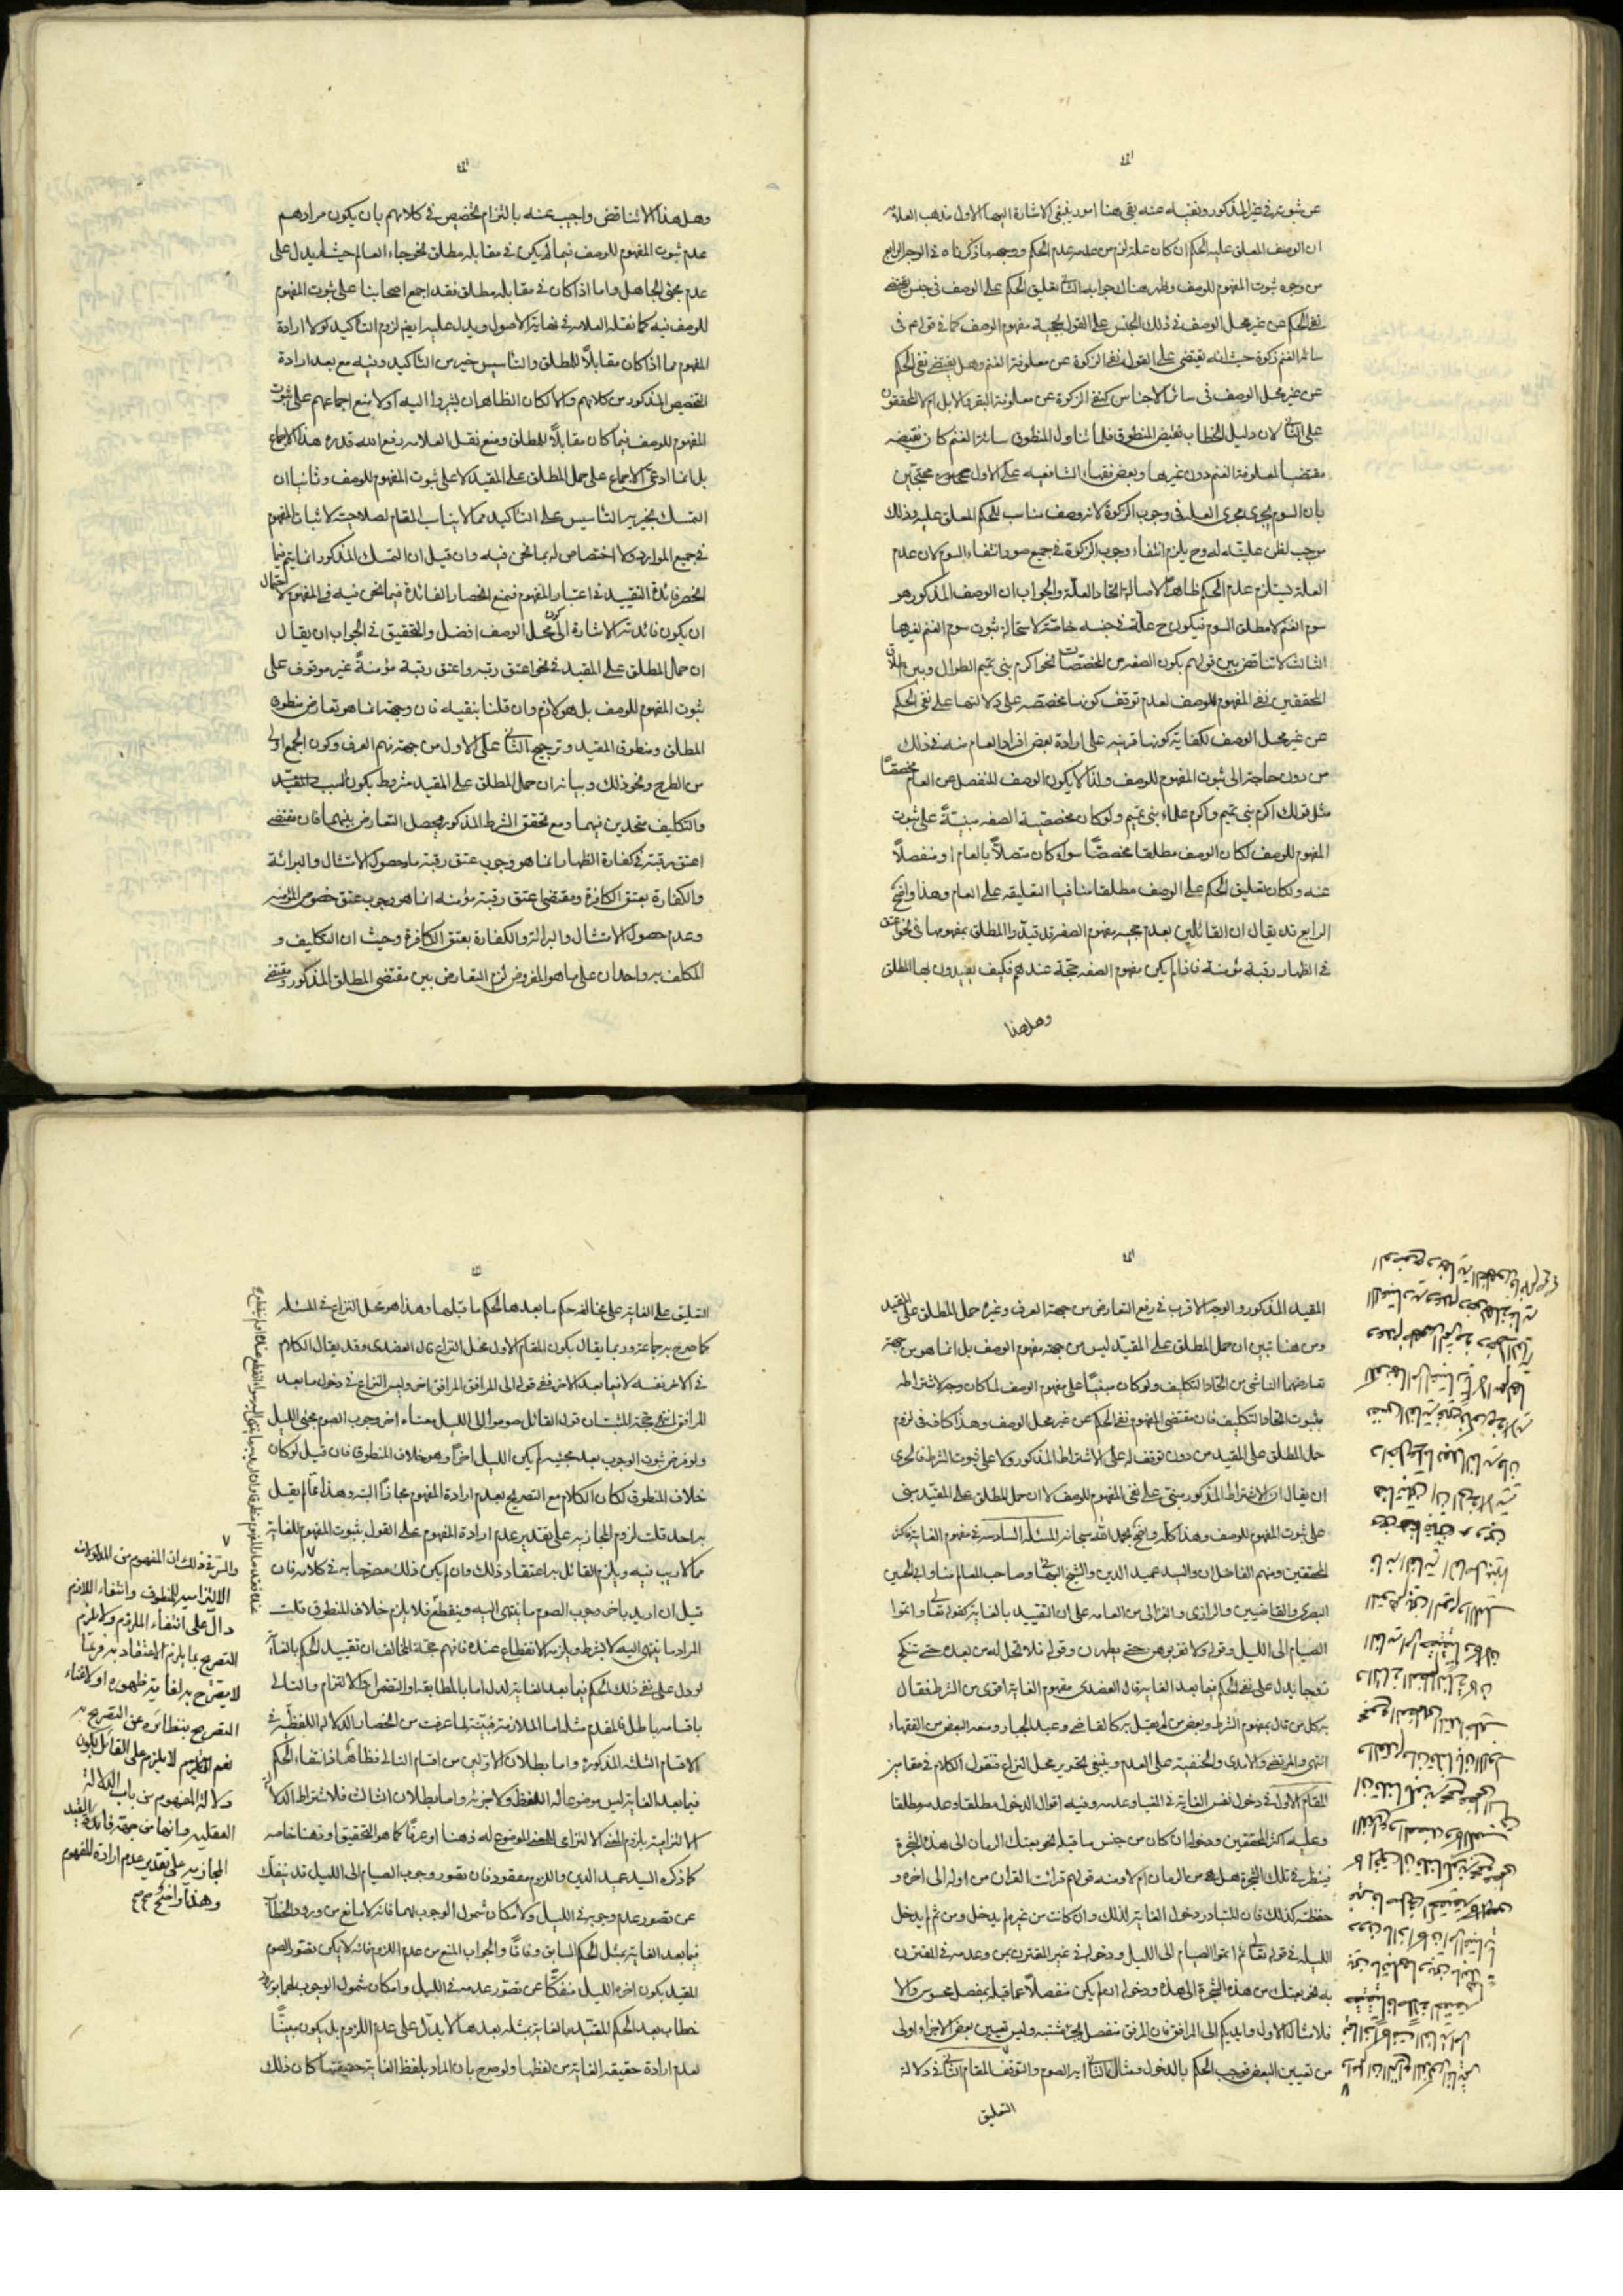 عن ثبوته في غير المذكور ونفيه عنه بقي هنا امور ينبغي الاشارة اليها الاول مذهب العلامة
ان الوصف المعلق عليه الحكم ان كان علة لزم من عدمه عدم الحكم ووجهه ما ذكرناه في الوجه الرابع
من وجوه ثبوت المفهوم للوصف وظهر هناك جوابه الثاني تعليق الحكم على الوصف في جنس يقتضي
نفي الحكم عن غير محل الوصف في ذلك الجنس على القول بحجية مفهوم الوصف كما في قولهم في
سائر الغنم زكوة حيث انه يقتضي على القول نفي الزكوة عن معلوفة الغنم وهل يقتضي نفي الحكم
عن غير محل الوصف في سائر الاجناس كنفي الزكوة عن معلوفة البقر والابل ام لا المحققون
على الثاني لان دليل الخطاب نقيض المنطوق فلما تناول المنطوق سائرا لغنم كان نقيضه
مقتضيا لمعلوفة الغنم دون غيرها وبعض فقهاء الشافعيه على الاول محتجين
بان السوم يجري مجرى العلة في وجوب الزكوة لانه وصف مناسب للحكم المعلق عليه وذلك
موجب لظن عليته له وح يلزم انتفاء وجوب الزكوة في جميع صور انتفاء السوم لان عدم
العلة يستلزم عدم الحكم ظاهرا لاصالة اتحاد العلة والجواب ان الوصف المذكور هو
سوم الغنم لا مطلق السوم فيكون ح علة في جنسه خاصة لاستحالة ثبوت سوم الغنم لغيرها
الثالث لا تناقض بين قولهم بكون الصفه من المخصصات نحو اكرم بني تميم الطوال وبين
المحققين نفي المفهوم للوصف لعدم توقف كونها مخصصه على دلالتها على نفي الحكم
عن غير محل الوصف لكفاية كونها قرينه على ارادة بعض افراد العام منه في ذلك
من دون حاجة الى ثبوت المفهوم للوصف ولذا لا يكون الوصف المنفصل عن العام مخصصا
مثل قولك اكرم بني تميم واكرم علماء بني تميم ولو كان مخصصية الصفه مبنية على ثبوت
المفهوم للوصف لكان الوصف مطلقا مخصصا سواء كان متصلا بالعام او منفصلا
عنه ولكان تعليق الحكم على الوصف مطلقا منافيا لتعليقه على العام وهذا واضح
الرابع قد يقال ان القائلين بعدم حجيه مفهوم الصفه قد قيدوا المطلق بمفهومها في نحو اعتق
في الظهار رقبة مؤمنة فاذا لم يكن مفهوم الصفه حجة عندهم فكيف يقيدون بها المطلق
وهل هذا
وهل هذا الا تناقض واجيب عنه بالتزام تخصيص في كلامهم بان يكون مرادهم
عدم ثبوت المفهوم للوصف فيما لم يكن في مقابله مطلق نحو جاء العالم حيث لم يدل على
عدم مجئ الجاهل واما اذا كان في مقابله مطلق فقد اجمع اصحابنا على ثبوت المفهوم
للوصف فيه كما نقله العلامه في نهاية الاصول ويدل عليه ايضا لزوم التأكيد لولا ارادة
المفهوم مما اذا كان مقابلا للمطلق والتأسيس خير من التأكيد وفيه مع بعد ارادة
التخصيص المذكور من كلامهم والا لكان الظاهر ان يشيروا اليه اولا منع اجماعهم على ثبوت
المفهوم للوصف فيما كان مقابلا للمطلق ومنع نقل العلامه رفع الله قدره هذا الاجماع
بل انما ادعى الاجماع على حمل المطلق على المقيد لا على ثبوت المفهوم للوصف وثانيا ان
التمسك بخيرية التأسيس على التأكيد مما لا يناسب المقام لصلاحيته لاثبات المفهوم
في جميع الموارد ولا اختصاص له بما نحن فيه وان قيل ان التمسك المذكور انما يتم فيما
انحصر فائدة التقييد في اعتبار المفهوم فيمنع انحصار الفائدة فيما نحن فيه في المفهوم لاحتمال
ان يكون فائدته الاشارة الى كون محل الوصف افضل والتحقيق في الجواب ان يقال
ان حمل المطلق على المقيد في نحو اعتق رقبه واعتق رقبة مؤمنة غير موقوف على
ثبوت المفهوم للوصف بل هو لازم وان قلنا بنفيه فان وجهه انما هو تعارض منطوق
المطلق ومنطوق المقيد وترجيح الثاني على الاول من جهة فهم العرف وكون الجمع اولى
من الطرح ونحو ذلك وبيانه ان حمل المطلق على المقيد مشروط بكون السبب
والتكليف متحدين فيهما ومع تحقق الشرط المذكور يحصل التعارض بينهما فان مقتضى
اعتق رقبة في كفارة الظهار انما هو وجوب عتق رقبة ما وحصول الامتثال والبرائة
والكفارة بعتق الكافرة ومقتضى اعتق رقبة مؤمنه انما هو وجوب عتق خصوص المؤمنه
وعدم حصول الامتثال والبرائة والكفارة بعتق الكافرة وحيث ان التكليف و
المكلف به واحدان على ما هو المفروض لزم التعارض بين مقتضى المطلق المذكور ومقتضى
المقيد المذكور والوجه الاقرب في رفع التعارض من جهة العرف وغيره حمل المطلق على المقيد
ومن هنا تبين ان حمل المطلق على المقيد ليس من جهة مفهوم الوصف بل انما هو من جهة
تعارضهما الناشي من اتحاد التكليف ولو كان مبنيا على مفهوم الوصف لما كان وجه لاشتراطه
بثبوت اتحاد التكليف فان مقتضى المفهوم نفي الحكم عن غير محل الوصف وهذا كاف في لزوم
حمل المطلق على المقيد من دون توقف له على الاشتراط المذكور ولا على ثبوت الشرط فالحري
ان يقال ان الاشتراط المذكور مبني على نفي المفهوم للوصف لا ان حمل المطلق على المقيد مبني
على ثبوت المفهوم للوصف وهذا كله واضح بحمد الله سبحانه المسئلة السادسه في مفهوم الغايه فاكثر
المحققين ومنهم الفاضلان والسيد عميد الدين والشيخ البهائي وصاحب المعالم منا وابي الحسين
البصري والقاضيين والرازي والغزالي من العامه على ان التقييد بالغاية كقوله تعالى واتموا
الصيام الى الليل وقوله ولا تقربوهن حتى يطهرن وقوله فلا تحل له من بعد حتى تنكح
زوجا يدل على نفي الحكم فيما بعد الغايه قال العضدي مفهوم الغايه اقوى من الشرط فقال
به كل من قال بمفهوم الشرط وبعض من لم يقل به كالقاضي وعبد الجبار ومنعه البعض من الفقهاء
انتهى والمرتضى والامدي والحنفية على العدم وينبغي تحرير محل النزاع فنقول الكلام في مقامين
المقام الاول في دخول نفس الغاية في المغيا وعدمه وفيه اقوال الدخول مطلقا وعدمه مطلقا
وعليه اكثر المحققين ودخولها ان كان من جنس ما قبله نحو بعتك الرمان الى هذه الشجرة
فينظر في تلك الشجرة هل هي من الرمان ام لا ومنه قولهم قرات القران من اوله الى اخره و
حفظته كذلك فان المتبادر دخول الغاية لذلك وان كانت من غيره لم يدخل ومن ثم لم يدخل
الليله في قوله تعالى ثم اتموا الصيام الى الليل ودخوله في غير المقترن بمن وعدمه في المقترن
به نحو بعتك من هذه الشجرة الى هذه ودخوله ان لم يكن منفصلا عما قبله بمفصل محسوس والا
فلا مثال الاول وايديكم الى المرافق فان المرفق منفصل بجزء مشتبه وليس تعيين بعض الاجزاء اولى
من تعيين البعض فوجب الحكم بالدخول ومثال الثاني اية الصوم والتوقف المقام الثاني في دلالة
التعليق
التعليق على الغاية على مخالفة حكم ما بعدها لحكم ما قبلها وهذا هو محل النزاع في المسئلة
كما صرح به جماعة وربما يقال بكون المقام الاول محل النزاع قال العضدي وقد يقال الكلام
في الاخر نفسه لا فيما بعد الاخر ففي قوله الى المرافق المرافق اخر وليس النزاع في دخول ما بعد
المرافق انتهى حجة المثبتين ان قول القائل صوموا الى الليل معناه اخر وجوب الصوم مجئ الليل
ولو فرض ثبوت الوجوب بعد مجيئه لم يكن الليل اخرا وهو خلاف المنطوق فان قيل لو كان
خلاف المنطوق لكان الكلام مع التصريح بعدم ارادة المفهوم مجازا البته وهذا مما لم يقل
به احد قلت لزوم المجازيه على تقدير عدم ارادة المفهوم على القول بثبوت المفهوم للغاية
مما لا ريب فيه ويلزم القائل به اعتقاد ذلك وان لم يكن ذلك مصرحا به في كلامه فان
قيل ان اريد باخر وجوب الصوم ما ينتهي اليه وينقطع فلا يلزم خلاف المنطوق قلت
المراد ما ينتهي اليه لا بشرط ويلزمه الانقطاع عنده فافهم حجة المخالف ان تقييد الحكم بالغاية
لو دل على نفي ذلك الحكم فيما بعد الغاية لدل اما بالمطابقة او التضمن او الالتزام والتالي
باقسامه باطل فالمقدم مثله اما الملازمة فبينة لما عرفت من انحصار الدلاله اللفظية في
الاقسام الثلثه المذكوره واما بطلان الاولين من اقسام التالي فظاهر اذ انتفاء الحكم
فيما بعد الغاية ليس موضوعا له اللفظ ولا جزئه واما بطلان الثالث فلاشتراط الدلالة
الالتزامية بلزوم المعنى الالتزامي للمعنى الموضوع له ذهنا او عرفا كما هو التحقيق او ذهنا خاصه
كما ذكره السيد عميد الدين واللزوم مفقود فان تصور وجوب الصيام الى الليل قد ينفك
عن تصور عدم وجوبه في الليل ولامكان شمول الوجوب لهما فانه لا مانع من ورود الخطاب
فيما بعد الغاية بمثل الحكم السابق وفاقا والجواب المنع من عدم اللزوم فانه لا يمكن تصور الصوم
المقيد بكون اخره الليل منفكا عن تصور عدمه في الليل وامكان شمول الوجوب لهما بورود
خطاب بعد الحكم المقيد بالغاية بمثله بعدها لا يدل على عدم اللزوم بل يكون مبينا
لعدم ارادة حقيقه الغاية من لفظها ولو صرح بان المراد بلفظ الغاية حقيقتها كان ذلك
والسر في ذلك ان المفهوم من المدلولات
الالتزاميه للمنطوق وانتفاء اللازم
دال على انتفاء الملزوم ولا يلزم
التصريح بما يلزم الاعتقاد به فربما
لا يصرح به لغاية ظهوره او لاغناء
التصريح بنظائره عن التصريح به
نعم لا يلزم على القائل بكون
دلالة المفهوم من باب الدلالة
العقليه وانها من جهة فائدة القيد
المجازيه على تقدير عدم ارادة المفهوم
وهذا واضح